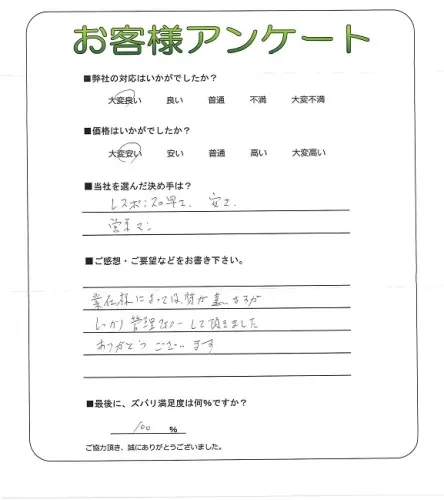 お客様アンケート
■弊社の対応はいかがでしたか?
大変良い 良い 普通 不満 大変不満
■価格はいかがでしたか?
大変安い 安い 普通 高い 大変高い
■当社を選んだ決め手は?
レスポンスの早さ、安さ、
営業マン
■ご感想・ご要望などをお書き下さい。
業者様によっては質が悪い
しっかり管理 して頂きました
ありがとうございます
■最後に、ズバリ満足度は何%ですか?
100 %
ご協力頂き、誠にありがとうございました。